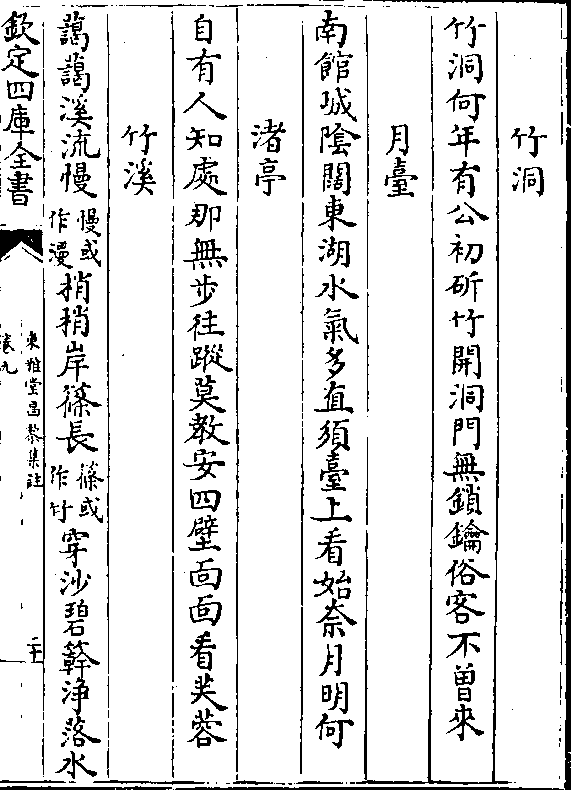 竹洞
竹洞何年有公初斫竹開洞門無鎖鑰俗客不曽來
月臺
南館城陰闊東湖水氣多直須臺上看始奈月明何
渚亭
自有人知處那無步往蹤莫教安四壁面面看芙蓉
竹溪
藹藹溪流慢慢或作漫梢梢岸篠長篠或作竹穿沙碧簳浄落水
欽定四庫全書
東雅堂昌黎集註
卷九
二十